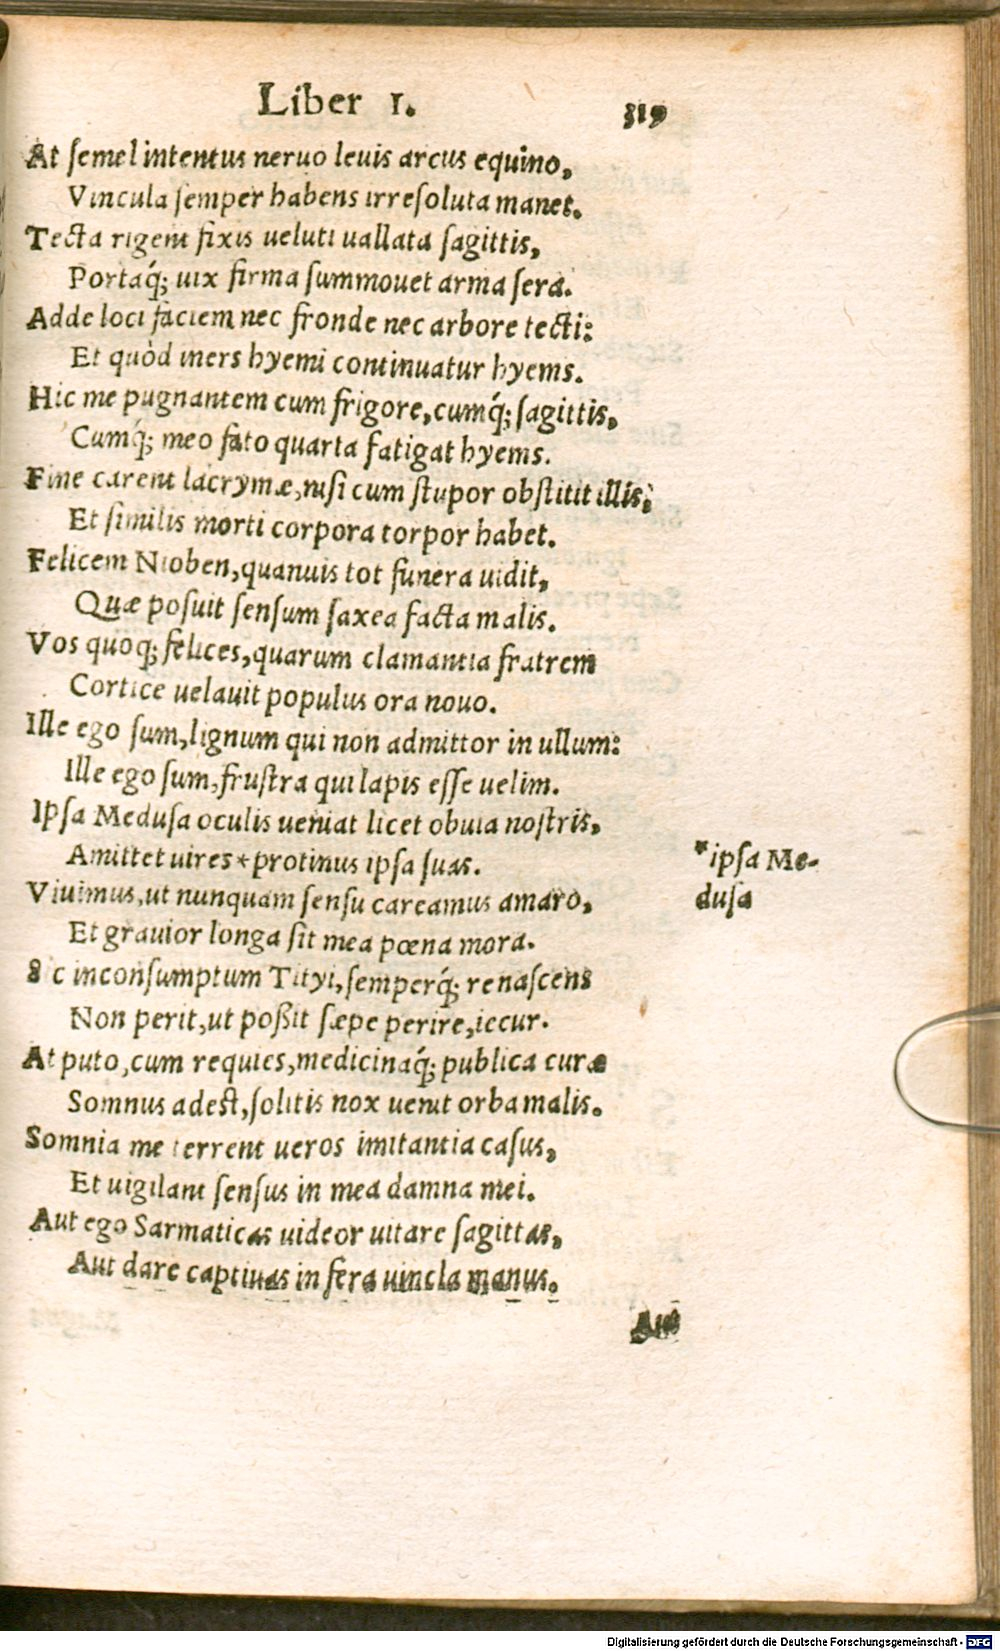 Liber 1. 319
At semel intentus neruo leuis arcus equino,
Vincula semper habens irresoluta manet.
Tecta rigent fixis ueluti uallata sagittis,
Portaq́; uix firma summouet arma sera.
Adde loci faciem nec fronde nec arbore tecti:
Et quòd iners hyemi continuatur hyems.
Hic me pugnantem cum frigore, cumq́; sagittis,
Cumq́; meo fato quarta fatigat hyems.
Fine carent lacrymæ, nisi cum stupor obstitit illis,
Et similis morti corpora torpor habet.
Felicem Nioben, quanuis tot funera uidit,
Quæ posuit sensum saxea facta malis.
Vos quoq; felices, quarum clamantia fratrem
Cortice uelauit populus ora nouo.
Ille ego sum, lignum qui non admittor in ullum:
Ille ego sum, frustra qui lapis esse uelim.
Ipsa Medusa oculis ueniat licet obuia nostris,
Amittet uires * protinus ipsa suas.
*ipsa Me-
dusa
Viuimus, ut nunquam sensu careamus amaro,
Et grauior longa sit mea pœna mora.
Sic inconsumptum Tityi, semperq́; renascens
Non perit, ut poßit sæpe perire, iecur.
At puto, cum requies, medicinaq́; publica curæ
Somnus adest, solitis nox uenit orba malis.
Somnia me terrent ueros imitantia casus,
Et uigilant sensus in mea damna mei.
Aut ego Sarmaticas uideor uitare sagittas,
Aut dare captiuas in fera uincla manus.
Aut
Digitalisierung gefördert durch die Deutsche Forschungsgemeinschaft - DFG